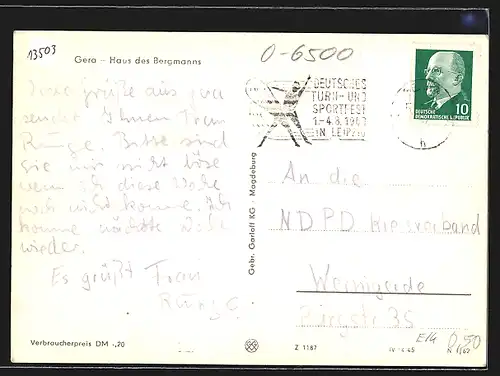 13503
Gera - Haus des Bergmanns
0-6500
DEUTSCHES
TURN- UND
SPORTFEST
1.-4.8.1963
IN LEIPZIG
DEUTSCHE
DEMOKRATISCHE REPUBLIK
10
h
grüße aus
sendet Ihnen Frau
Runge. Bitte sind
sie mir nicht böse
wenn ich diese Woche
noch nicht komme. Ich
komme nächste Woche
wieder.
Es grüßt Frau
Runge
Gebr. Garloff KG · Magdeburg
An die
NDPD Kreisverband
Wernigerode
Burgstr 35
Verbraucherpreis DM -,20
Z 1187
IV-14-45
E14 0,50